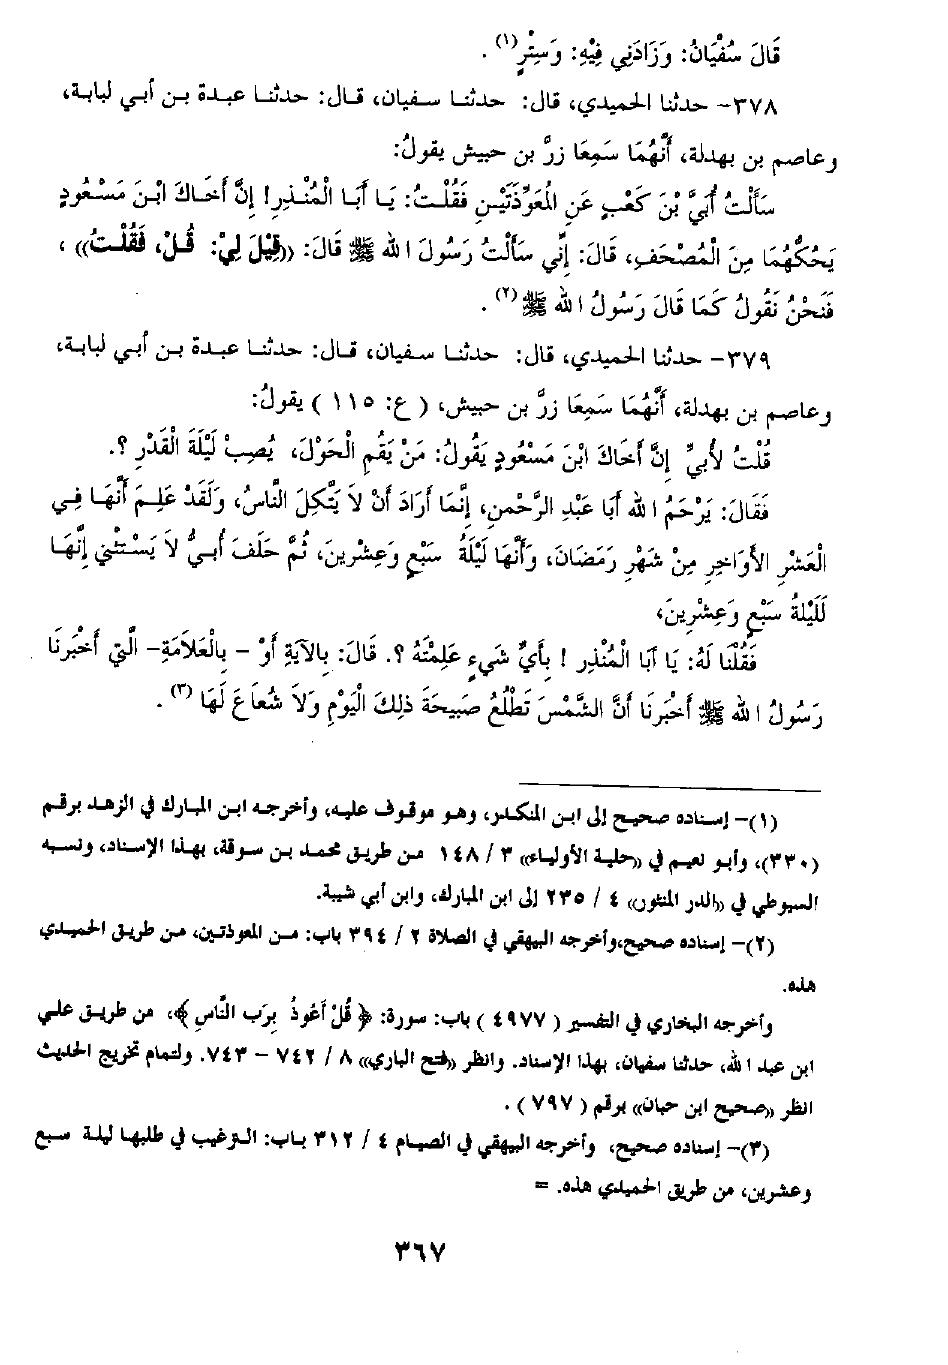 قَالَ سُفْيَانُ: وَزَادَنِي فِيْهِ: وَسِتْرٍ(١) .
٣٧٨- حدثنا الحميدي، قال: حدثنا سفيان، قال: حدثنا عبدة بن أبي لبابة،
وعاصم بن بهدلة، أَنَّهُمَا سَمِعَا زرَّ بن حبيش يقولُ:
سَأَلْتُ أُبَيَّ بْنَ كَعْبٍ عَنِ المُعَوِّذَتَيْنِ فَقُلْتُ: يَا أَبَا الْمُنْذِرِ! إِنَّ أَخَاكَ ابْنَ مَسْعُودٍ
يَحُكُّهُمَا مِنَ الْمُصْحَفِ، قَالَ: إِنِّي سَأَلْتُ رَسُولَ الله ﷺ قَالَ: ((قِيْلَ لِيْ: قُلْ، فَقُلْتُ)) ،
فَنَحْنُ نَقُولُ كَمَا قَالَ رَسُولُ الله ﷺ(٢) .
٣٧٩- حدثنا الحميدي، قال: حدثنا سفيان، قال: حدثنا عبدة بن أبي لبابة،
وعاصم بن بهدلة، أَنَّهُمَا سَمِعَا زرَّ بن حبيش، ( ع: ١١٥ ) يقولُ:
قُلْتُ لأُبيٍّ إِنَّ أَخَاكَ ابْنَ مَسْعُودٍ يَقُولُ: مَنْ يَقُمِ الْحَوْلَ، يُصِبْ لَيْلَةَ الْقَدْرِ ؟.
فَقَالَ: يَرْحَمُ الله أَبَا عَبْدِ الرَّحْمنِ، إِنَّمَا أَرَادَ أَنْ لاَ يَتَّكِلَ النَّاسُ، وَلَقَدْ عَلِمَ أَنَّهَا فِي
الْعَشْرِ الأَوَاخِرِ مِنْ شَهْرِ رَمَضَانَ، وَأَنَّهَا لَيْلَةُ سَبْعٍ وَعِشْرِينَ، ثُمَّ حَلَفَ أُبيٌّ لاَ يَسْتَثْنِي إِنَّهَا
لَلَيْلةُ سَبْعٍ وَعِشْرِينَ،
فَقُلْنَا لَهُ: يَا أَبَا الْمُنْذِرِ ! بِأَيِّ شَيءٍ عَلِمْتَهُ ؟. قَالَ: بِالآيَةِ أَوْ - بِالْعَلاَمَةِ- الَّتِي أَخْبَرَنَا
رَسُولُ الله ﷺ أَخْبَرَنَا أَنَّ الشَّمْسَ تَطْلُعُ صَبِيحَةَ ذلِكَ الْيَوْمِ وَلاَ شُعَاعَ لَهَا (٣) .
(١)- إسناده صحيح إلى ابن المنكدر، وهو موقوف عليه، وأخرجه ابن المبارك في الزهد برقم
(٣٣٠)، وأبو نعيم في ((حلية الأولياء)) ٣ / ١٤٨ من طريق محمد بن سوقة، بهذا الإسناد، ونسبه
السيوطي في ((الدر المنثور)) ٤ / ٢٣٥ إلى ابن المبارك، وابن أبي شيبة.
(٢)- إسناده صحيح،وأخرجه البيهقي في الصلاة ٢ / ٣٩٤ باب: من المعوذتين، من طريق الحميدي
هذه.
وأخرجه البخاري في التفسير ( ٤٩٧٧ ) باب: سورة: ﴿ قُلْ أَعُوذُ بِرَبِّ النَّاسِ ﴾، من طريق علي
ابن عبد الله، حدثنا سفيان، بهذا الإسناد. وانظر ((فتح الباري)) ٨ / ٧٤٢ - ٧٤٣. ولتمام تخريج الحديث
انظر ((صحيح ابن حبان)) برقم ( ٧٩٧ ) .
(٣)- إسناده صحيح، وأخرجه البيهقي في الصيام ٤ / ٣١٢ باب: الترغيب في طلبها ليلة سبع
وعشرين، من طريق الحميدي هذه. =
٣٦٧